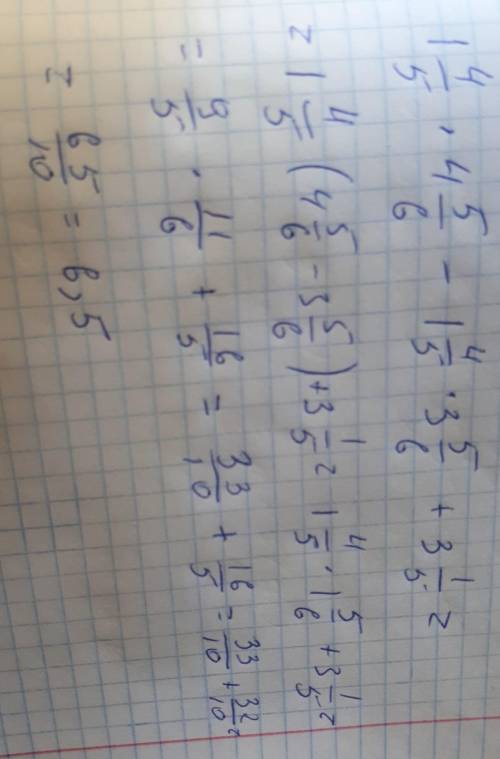 1 4/5 · 4 5/6 - 1 4/5 · 3 5/6 + 3 1/5 =
= 1 4/5 (4 5/6 - 3 5/6) + 3 1/5 = 1 4/5 · 1 5/6 + 3 1/5 =
= 9/5 · 11/6 + 16/5 = 33/10 + 16/5 = 33/10 + 32/10 =
= 65/10 = 6,5